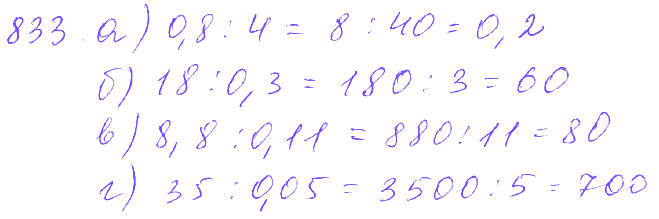 833. а) 0,8 : 4 = 8 : 40 = 0,2
б) 18 : 0,3 = 180 : 3 = 60
в) 8,8 : 0,11 = 880 : 11 = 80
г) 35 : 0,05 = 3500 : 5 = 700